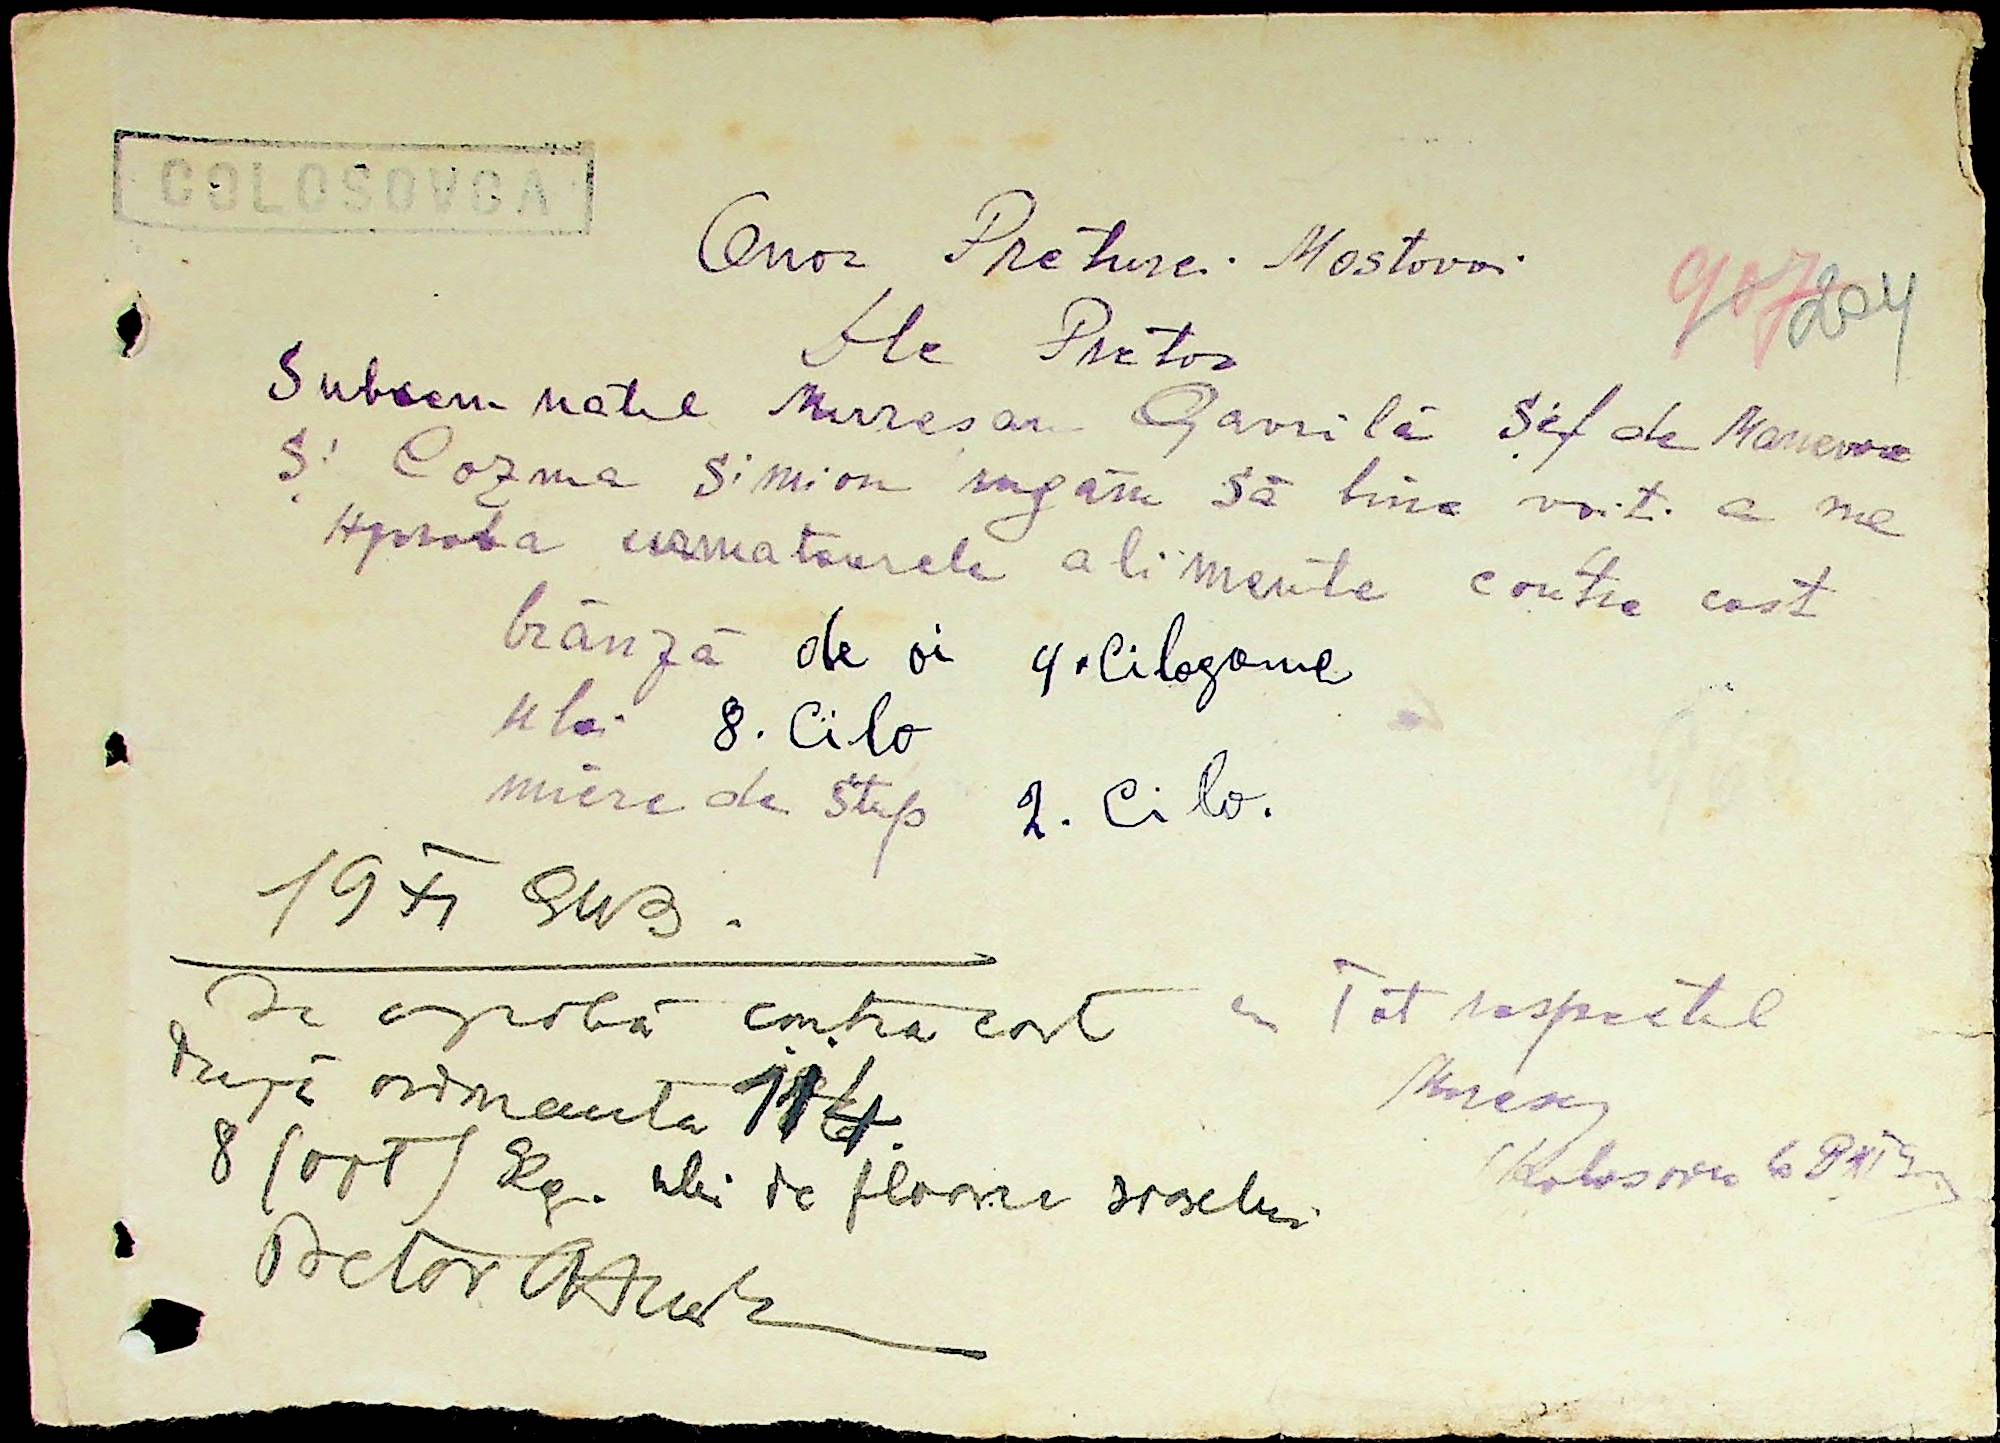 COLOSOVCA
Onor Préturei Mostovoi
907 204
Dle Prétor
Subsemnatul Muresan Gavrilă Șef de Manevra
și Cozma Simion rugăm să bine voiti a ne
Aproba urmatoarele alimente contra cost
brânză de oi 4. Cilograme
ulei 8. Cilo
miere de stup 2. Cilo.
19 XI
Se aprobă contra cost
după ordonanta 114.
8 (opt) Kg. ulei de floarea soarelui
Pretor
cu Tot respectul
Muresan